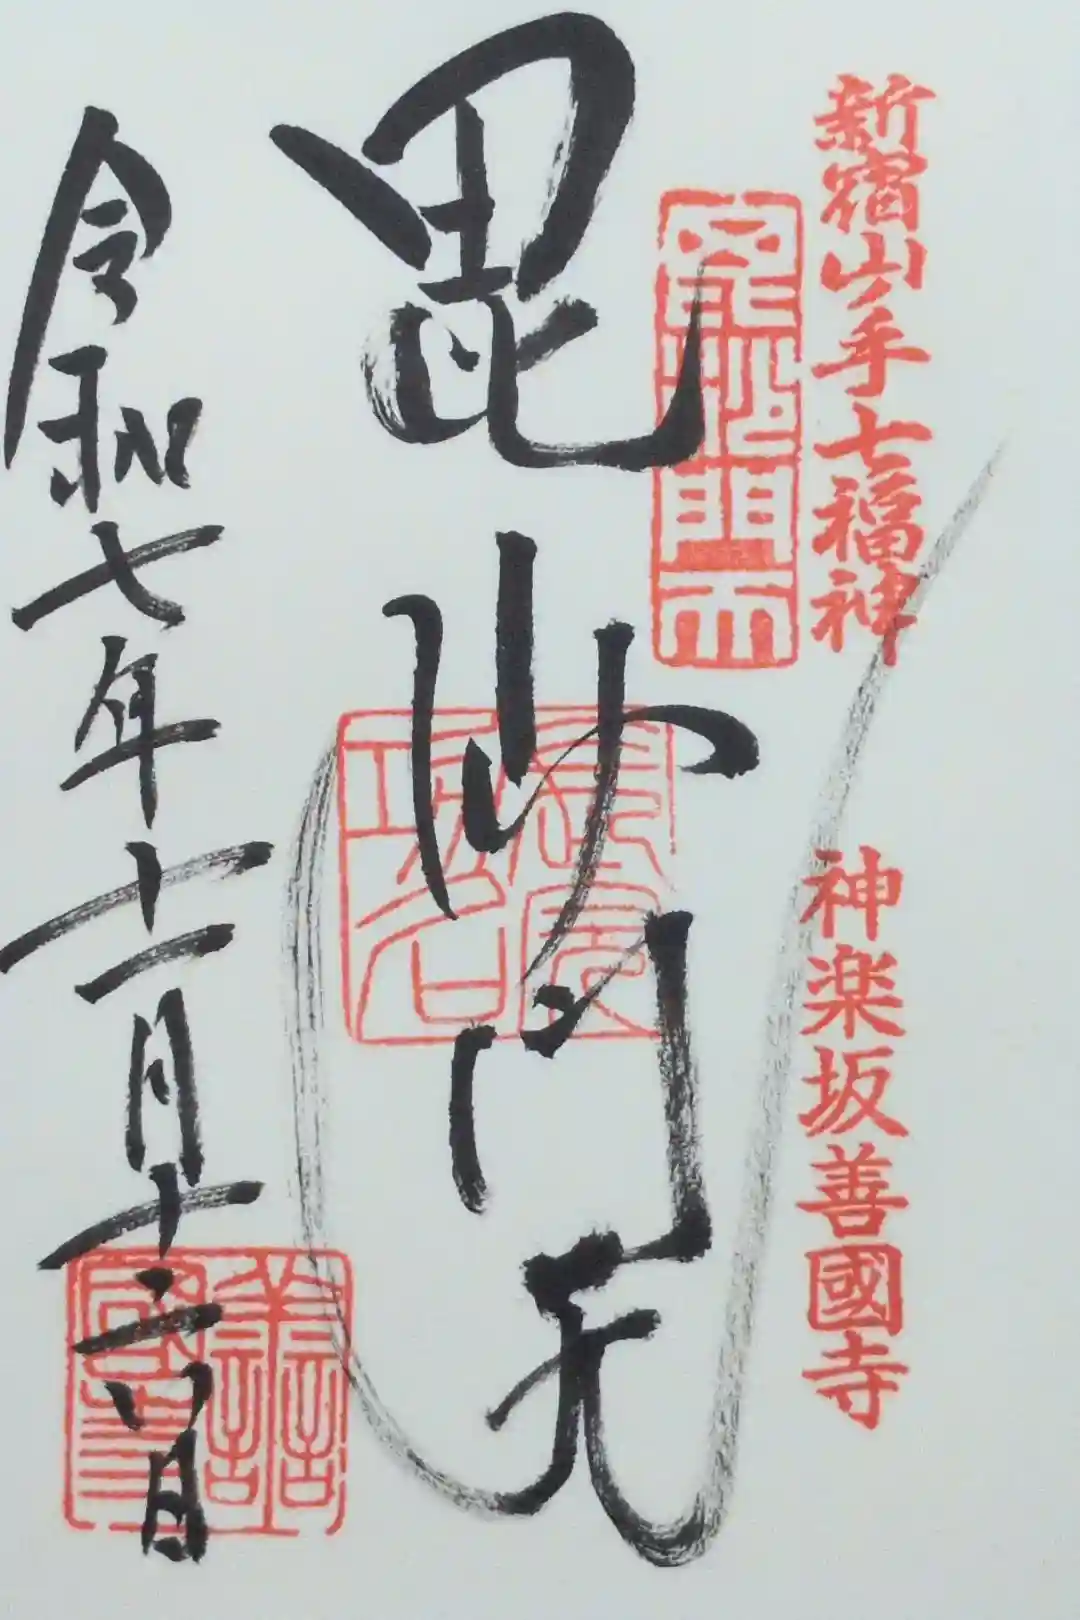 新宿山ノ手七福神
神楽坂善國寺
毘沙門天
毘沙門天
令和七年十一月十六日
善國寺